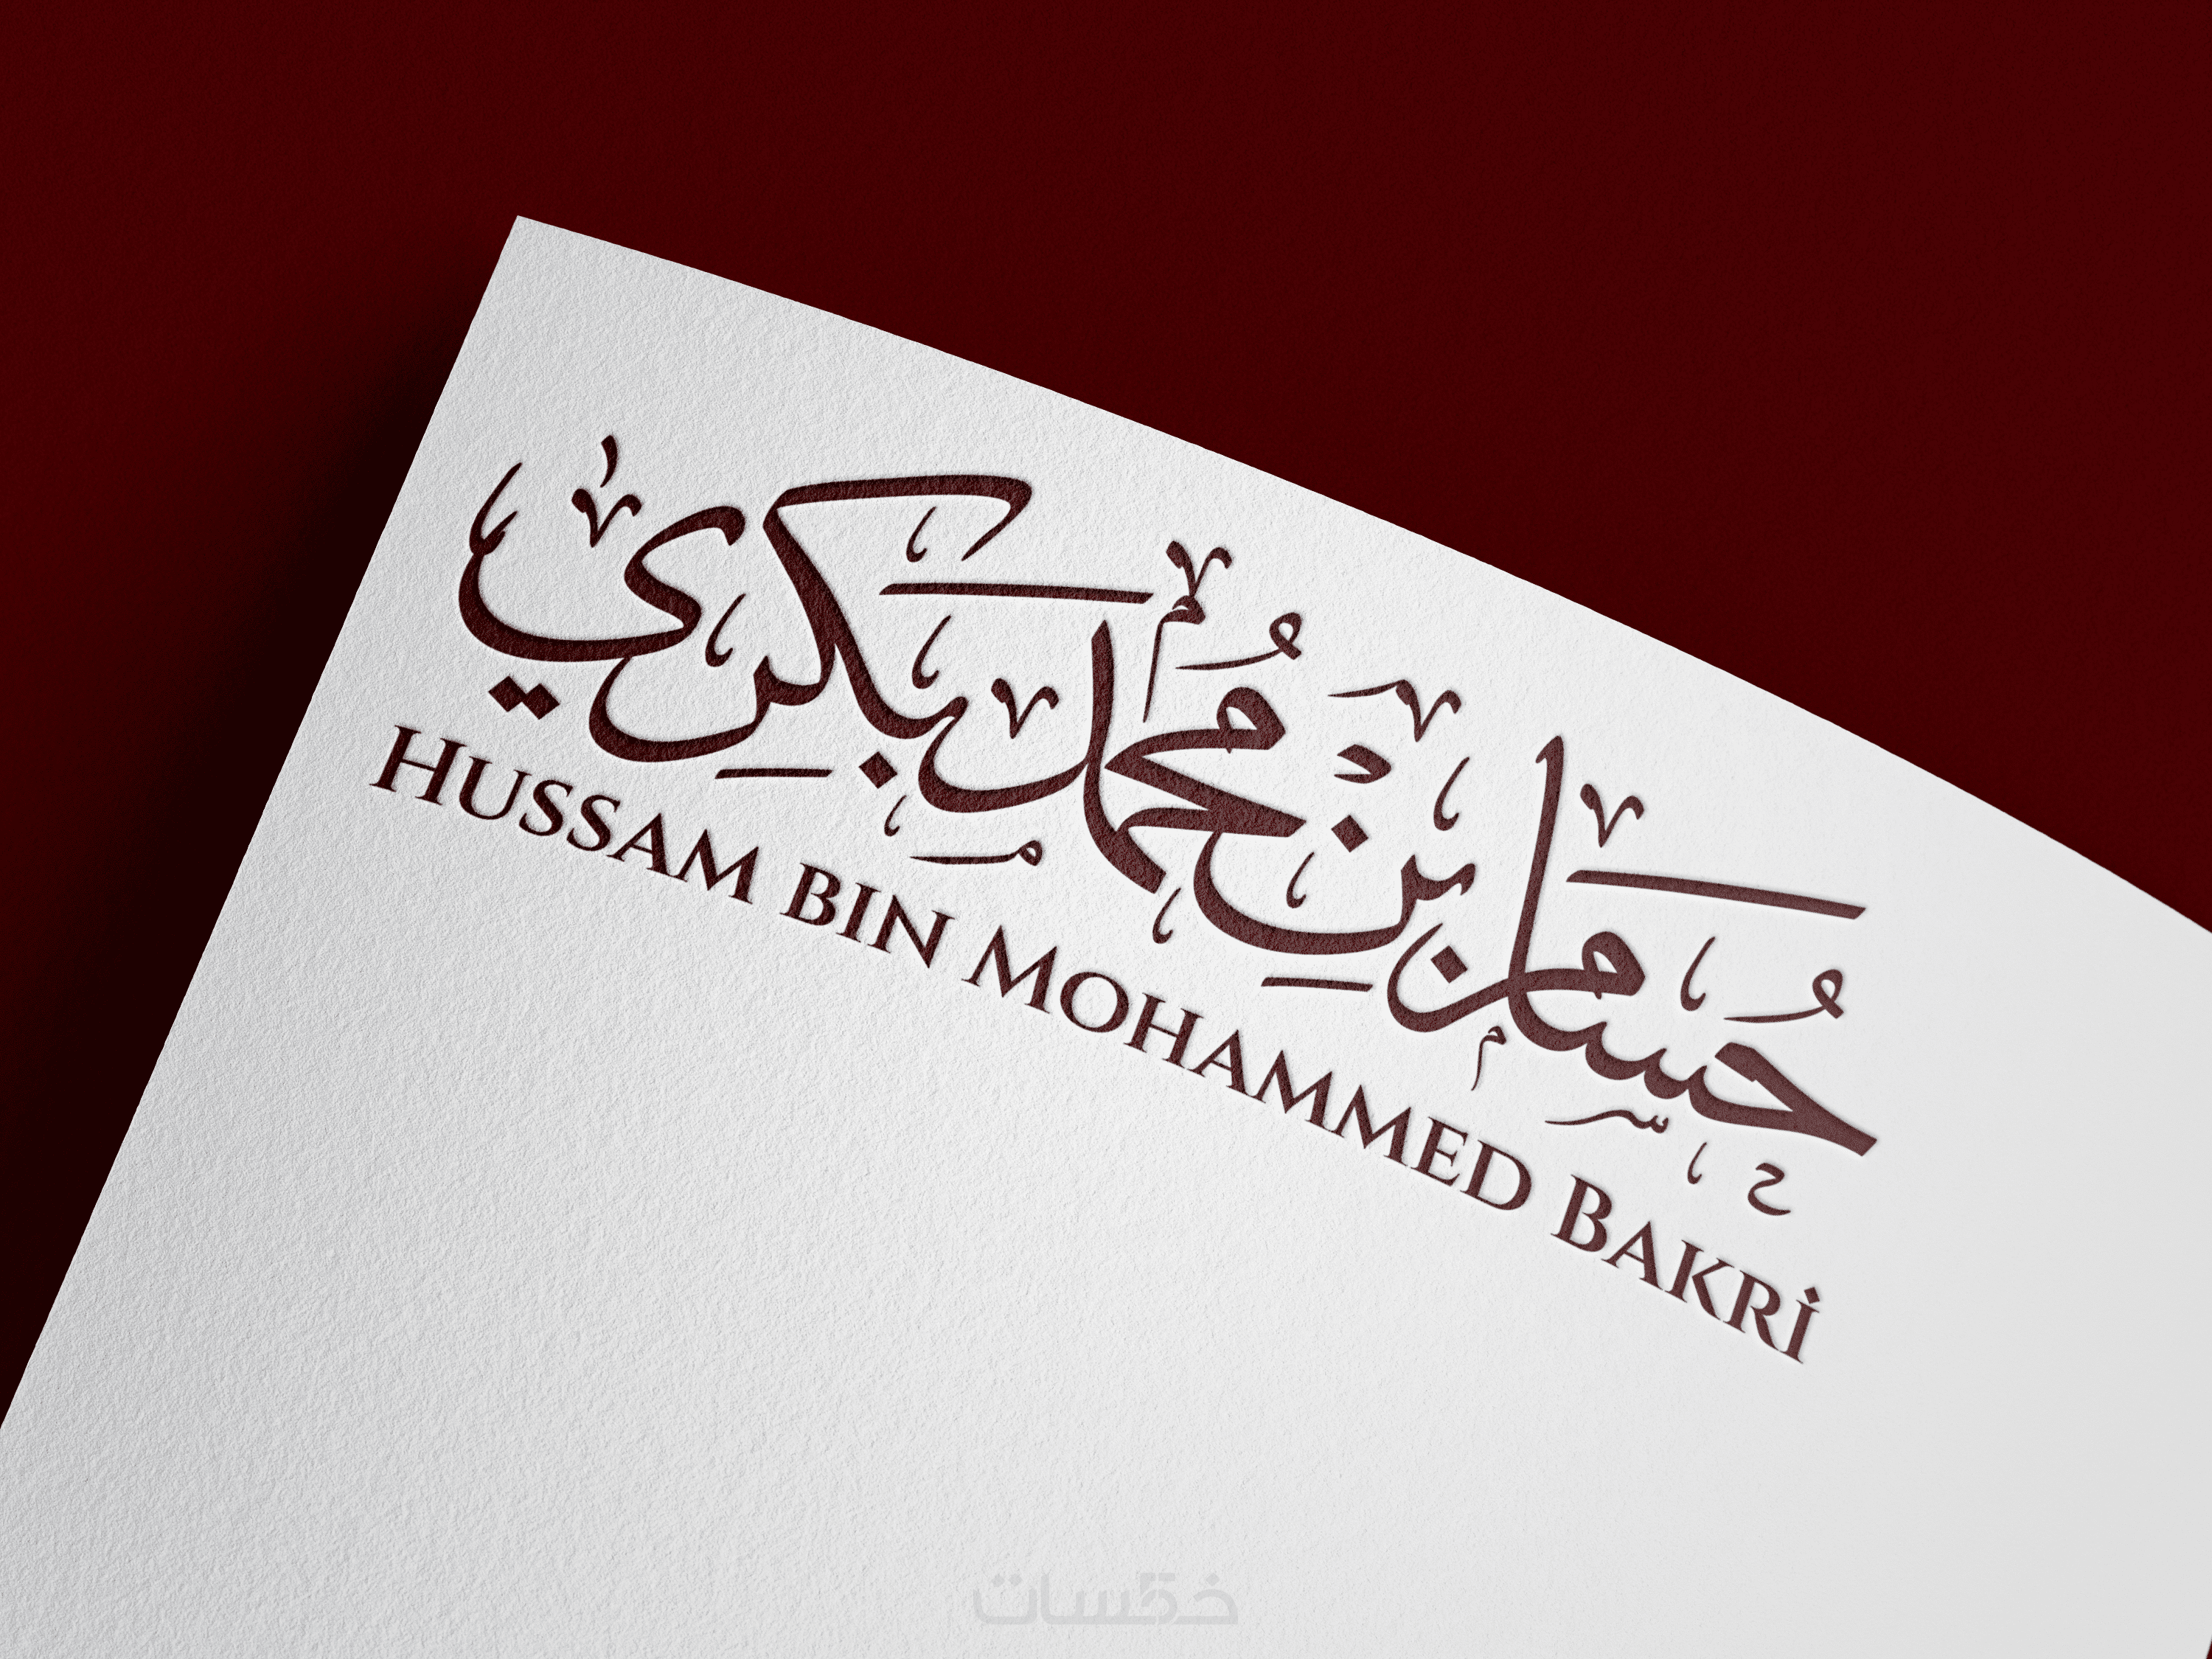 حُسَام بِنْ مُحَمَّد بَكرِي
HUSSAM BIN MOHAMMED BAKRİ
خمسات